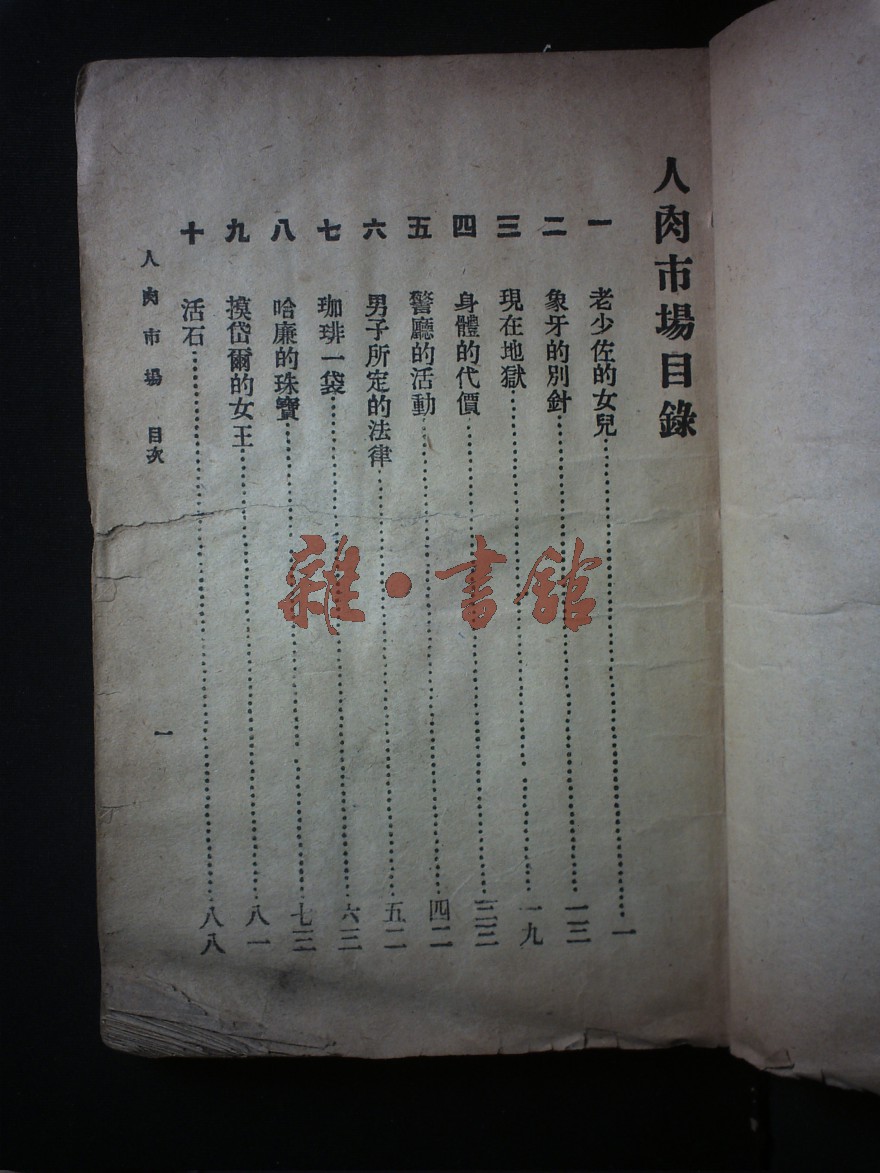 人肉市場目錄
一 老少佐的女兒………一
二 象牙的別針………一三
三 現在地獄………一九
四 身體的代價………三三
五 警廳的活動………四二
六 男子所定的法律………五二
七 珈琲一袋………六三
八 哈廉的珠寶………七三
九 摸岱爾的女王………八一
十 活石………八八
人肉市場 目次 一
雜·書館